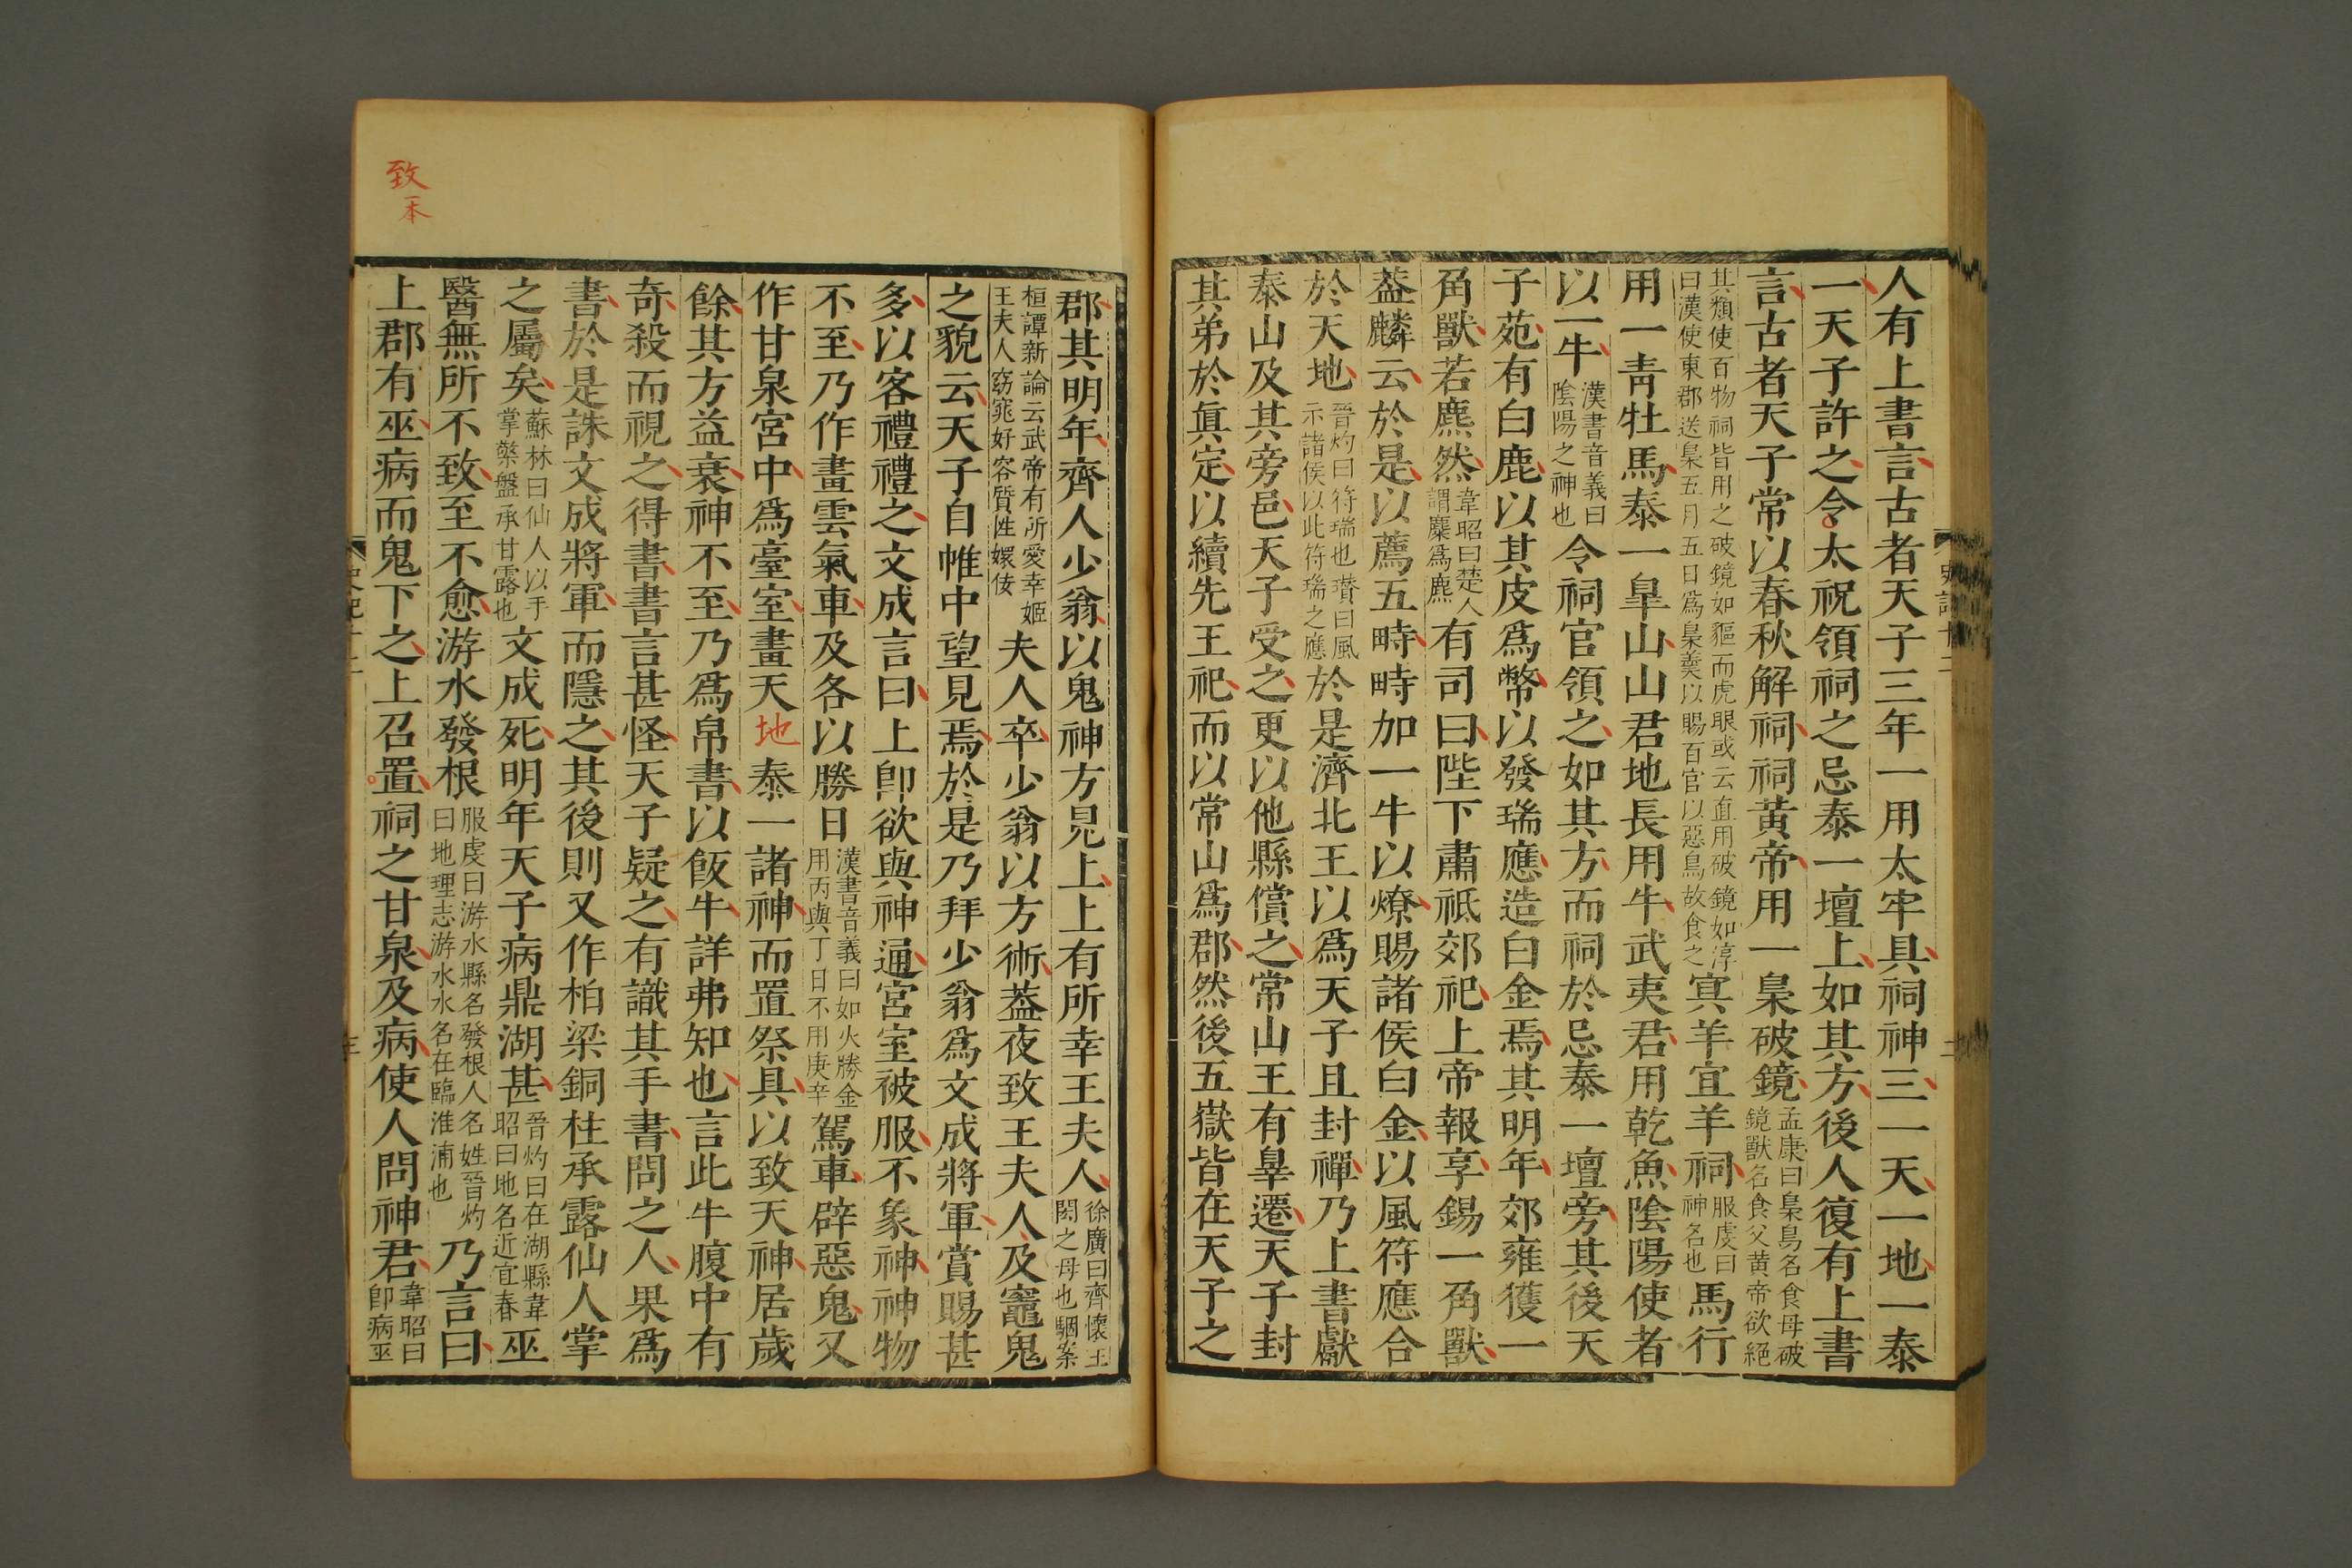 人有上書言古者天子三年一用太牢具祠神三一天一地一泰
一天子許之令太祝領祠之忌泰一壇上如其方後人復有上書
言古者天子常以春秋解祠祠黃帝用一梟破鏡孟康曰梟鳥名食母破鏡獸名食父黃帝欲絕
其類使百物祠皆用之破鏡如貙而虎眼或云直用破鏡如淳曰漢使東郡送梟五月五日爲梟羹以賜百官以惡鳥故食之㝠羊宜羊祠服虔曰神名也馬行
用一青牡馬泰一皐山山君地長用牛武夷君用乾魚陰陽使者
以一牛漢書音義曰陰陽之神也令祠官領之如其方而祠於忌泰一壇旁其後天
子苑有白鹿以其皮爲幣以發瑞應造白金焉其明年郊雍獲一
角獸若麃然韋昭曰楚人謂麋爲麃有司曰陛下肅祗郊祀上帝報享錫一角獸
葢麟云於是以薦五畤畤加一牛以燎賜諸侯白金以風符應合
於天地晉灼曰符瑞也瓚曰風示諸侯以此符瑞之應於是濟北王以爲天子且封禪乃上書獻
泰山及其旁邑天子受之更以他縣償之常山王有辠遷天子封
其弟於眞定以續先王祀而以常山爲郡然後五嶽皆在天子之
史記十二
二
郡其明年齊人少翁以鬼神方見上上有所幸王夫人徐廣曰齊懷王閎之母也駰案
桓譚新論云武帝有所愛幸姬王夫人窈窕好容質性嬛佞夫人卒少翁以方術葢夜致王夫人及竈鬼
之貌云天子自帷中望見焉於是乃拜少翁爲文成將軍賞賜甚
多以客禮禮之文成言曰上卽欲與神通宮室被服不象神神物
不至乃作畫雲氣車及各以勝日漢書音義曰如火勝金用丙與丁日不用庚辛駕車辟惡鬼又
作甘泉宮中爲臺室畫天地泰一諸神而置祭具以致天神居歲
餘其方益衰神不至乃爲帛書以飯牛詳弗知也言此牛腹中有
奇殺而視之得書書言甚怪天子疑之有識其手書問之人果爲
書於是誅文成將軍而隱之其後則又作柏梁銅柱承露仙人掌
之屬矣蘇林曰仙人以手掌擎盤承甘露也文成死明年天子病鼎湖甚晉灼曰在湖縣韋昭曰地名近宜春巫
醫無所不致至不愈游水發根服虔曰游水縣名發根人名姓晉灼曰地理志游水水名在臨淮浦也乃言曰
上郡有巫病而鬼下之上召置祠之甘泉及病使人問神君韋昭曰卽病巫
史記十二
致一本